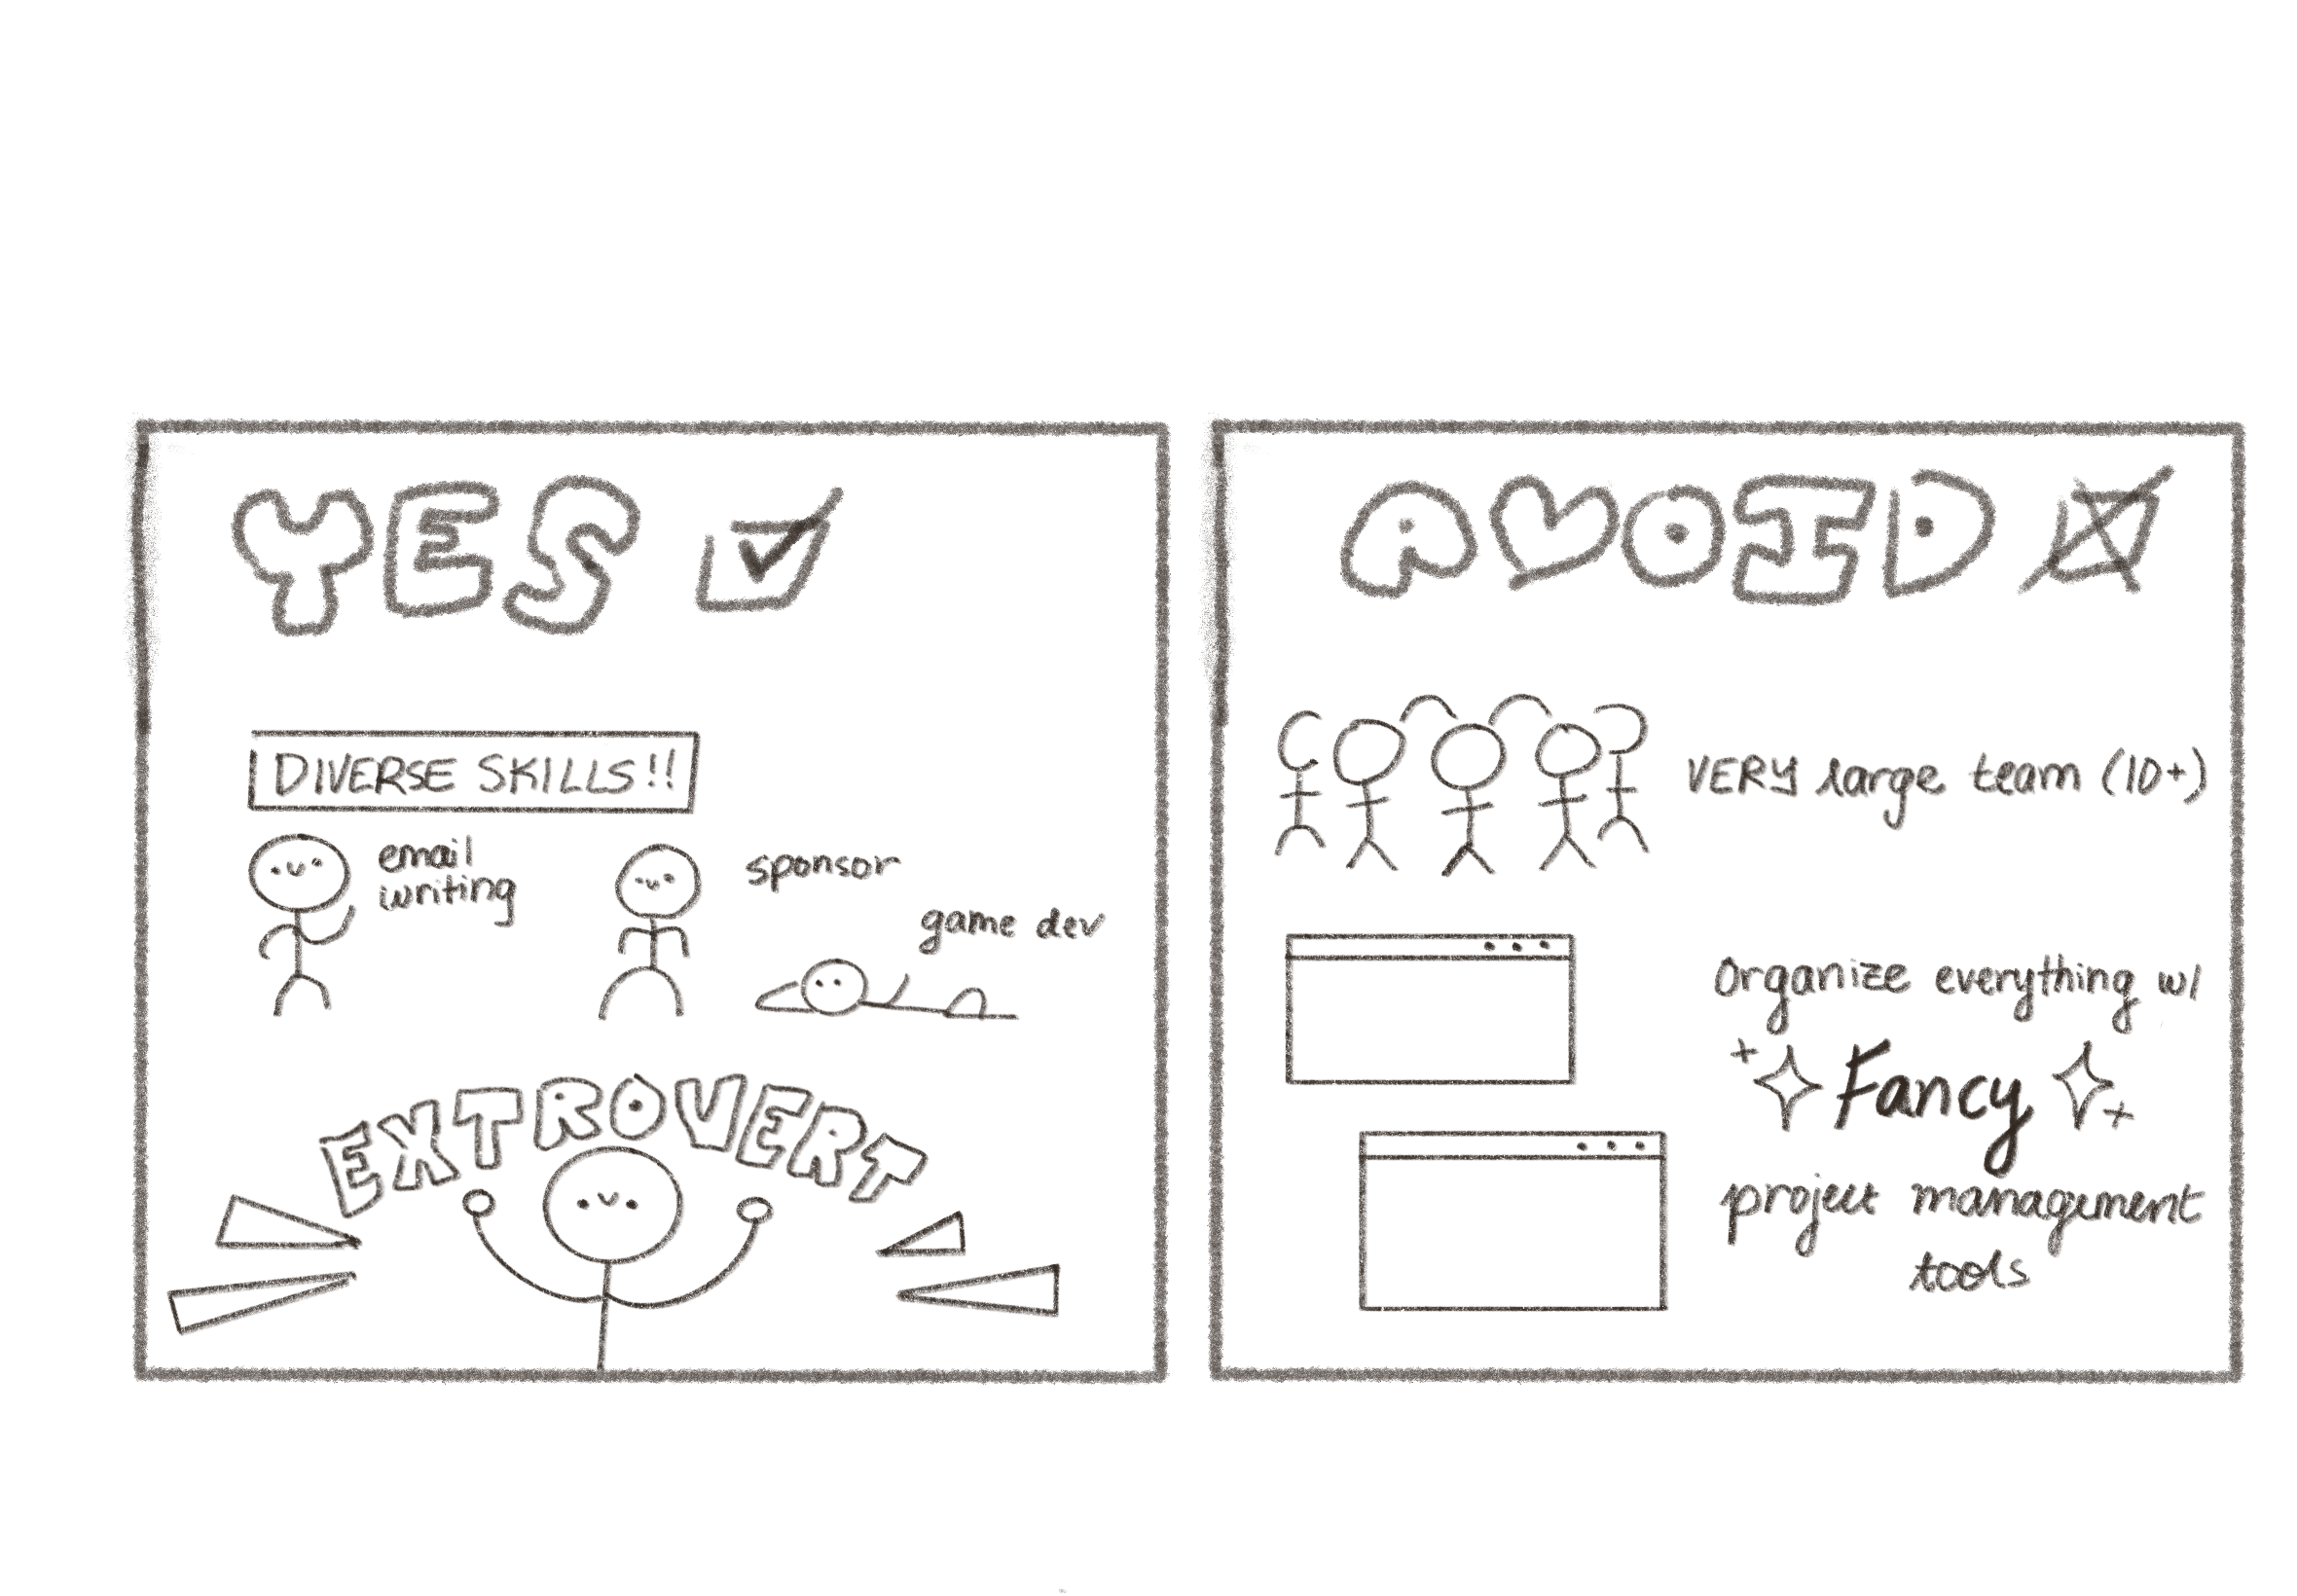 YES
DIVERSE SKILLS!!
email
writing
sponsor
game dev
EXTROVERT
AVOID
VERY large team (10+)
Organize everything w/
Fancy
project management
tools